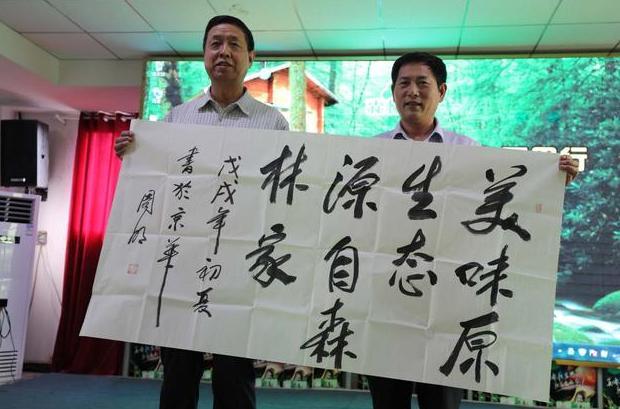 美味原
生态
源自森
林家
戊戌年初夏
书於京华
周明
行